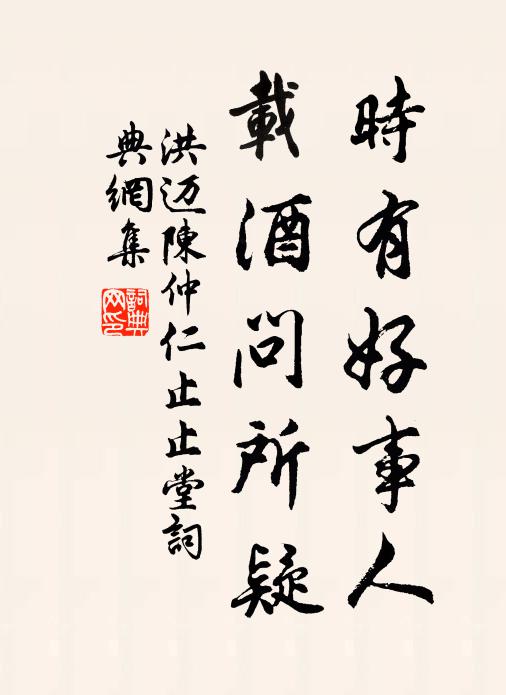 時有好事人
載酒問所疑
洪迈陳仲仁止止堂詞
典網集
詞典
网印